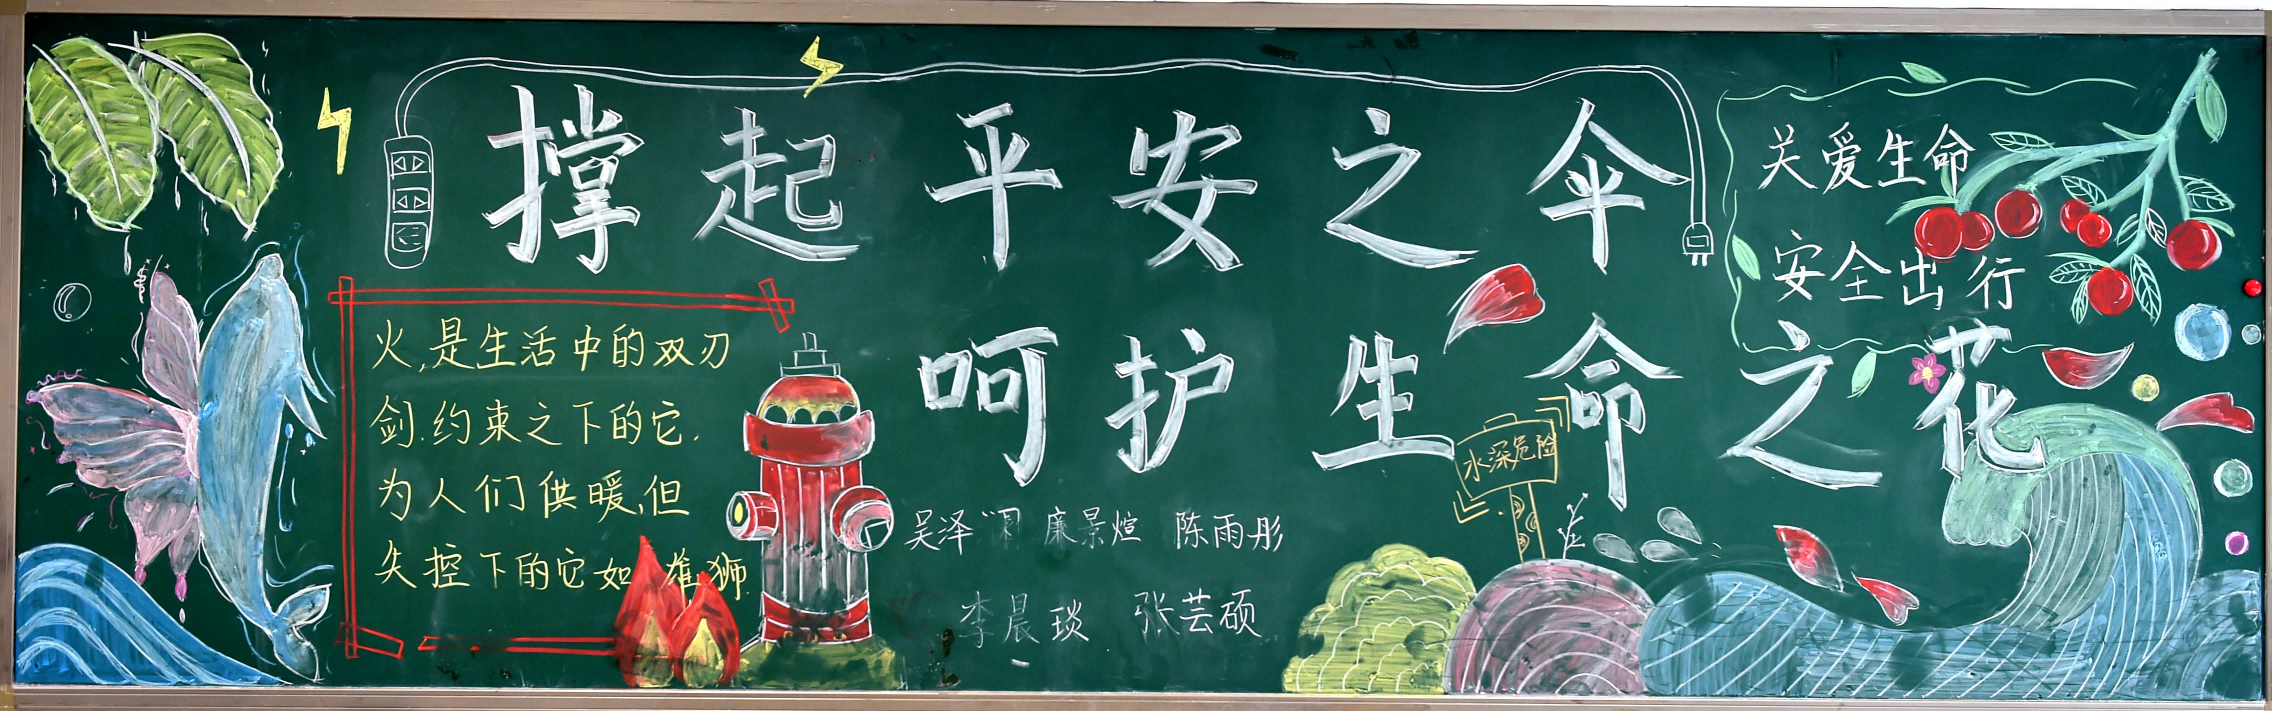 撑起平安之伞
呵护生命之花
关爱生命
安全出行
火,是生活中的双刃
剑.约束之下的它.
为人们供暖,但
失控下的它如雄狮.
水深危险
吴泽 廉景煊 陈雨彤
李晨琰 张芸硕